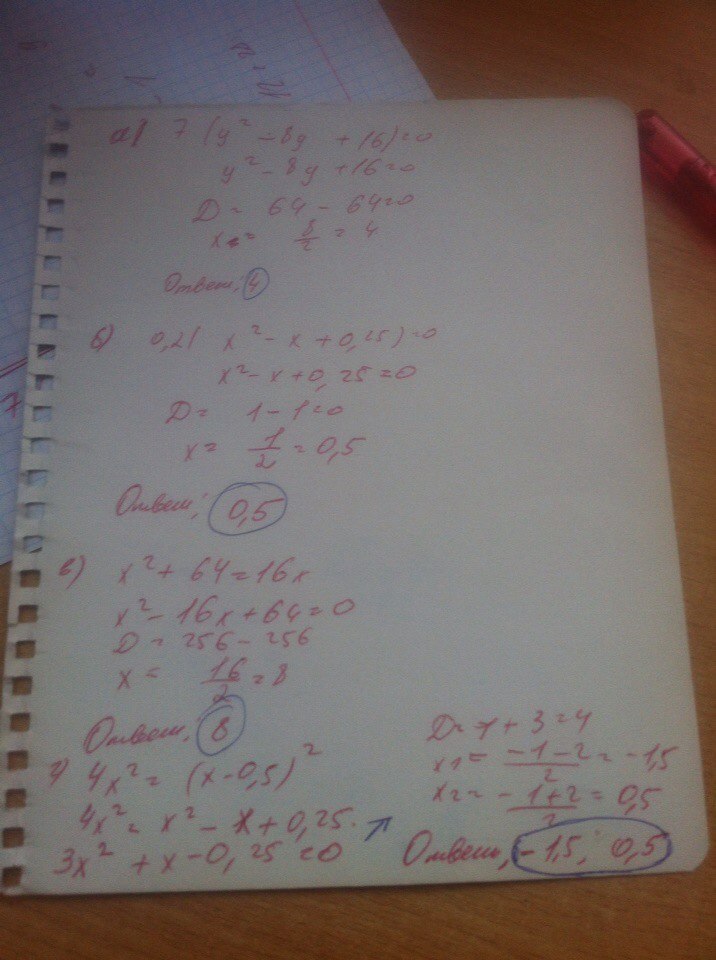 а) 7 (y² - 8y + 16) = 0
y² - 8y + 16 = 0
D = 64 - 64 = 0
x = 8/2 = 4
Ответ: 4
б) 0,2( x² - x + 0,25) = 0
x² - x + 0,25 = 0
D = 1 - 1 = 0
x = 1/2 = 0,5
Ответ: 0,5
в) x² + 64 = 16x
x² - 16x + 64 = 0
D = 256 - 256
x = 16/2 = 8
Ответ: 8
г) 4x² = (x - 0,5)²
4x² = x² - x + 0,25
3x² + x - 0,25 = 0
D = 1 + 3 = 4
x1 = -1-2/2 = -1,5
x2 = -1+2/2 = 0,5
Ответ: -1,5; 0,5